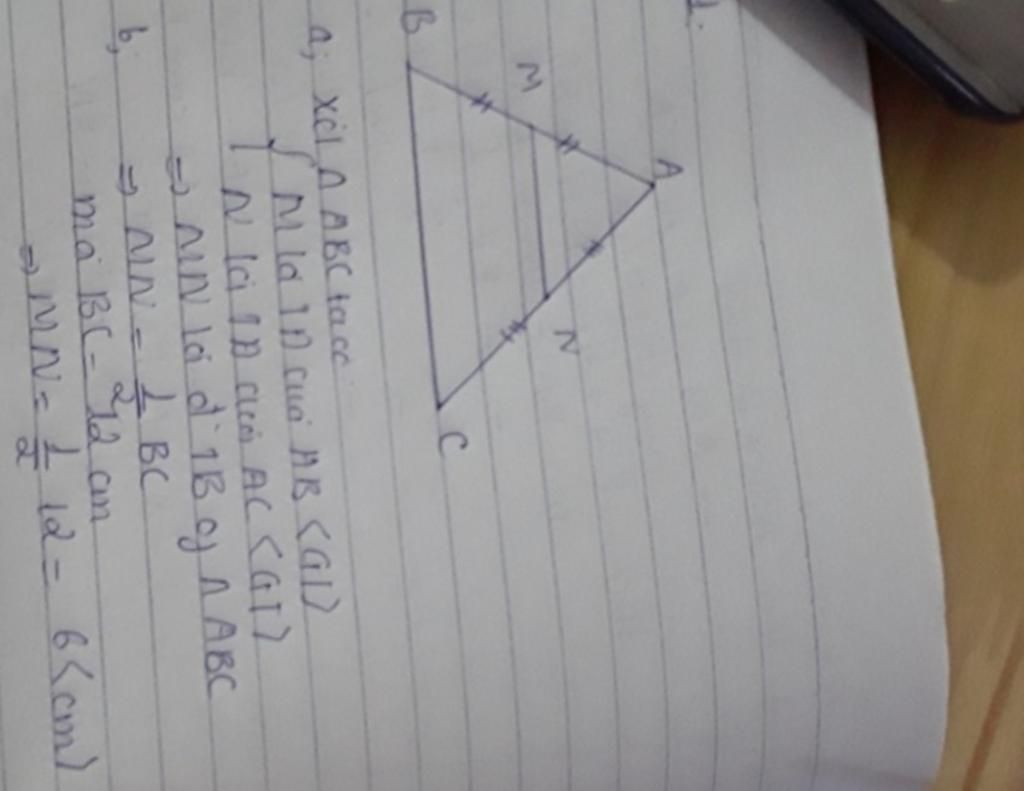 1.
A
M
N
B
C
a, xét Δ ABC ta có
{ M là TĐ của AB <GT>
N là TĐ của AC <GT>
=> MN là đ TB of Δ ABC
b, => MN = 1/2 BC
mà BC = 12 cm
=> MN = 1/2 12 = 6 <cm>